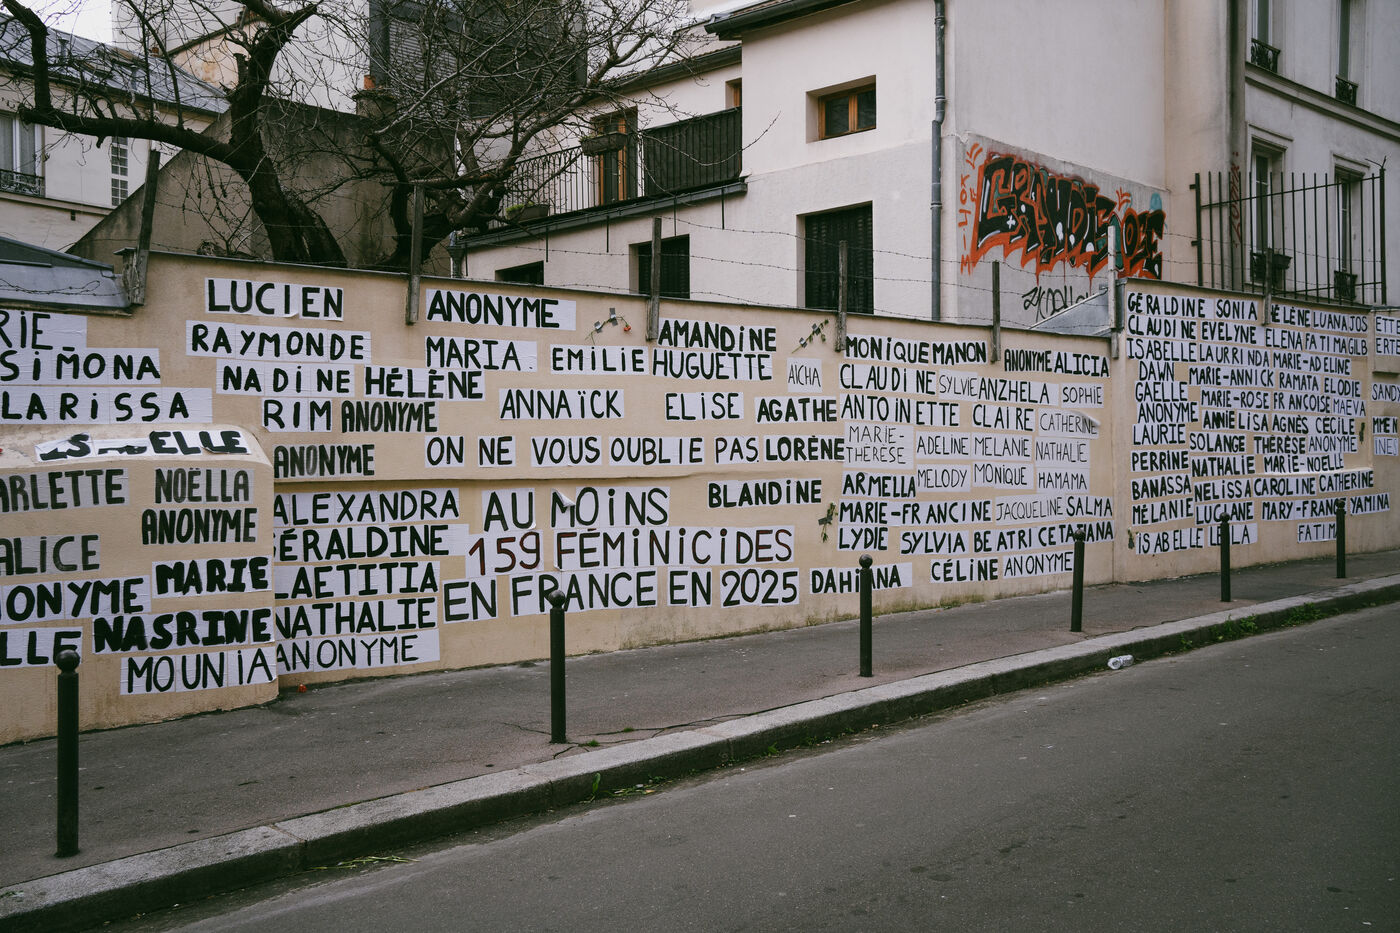 LUCIEN
ANONYME
RAYMONDE
MARIA
EMILIE
AMANDINE
HUGUETTE
SIMONA
NADINE HÉLÈNE
AÏCHA
LARISSA
RIM ANONYME
ANNAÏCK
ELISE
AGATHE
ELLE
ANONYME
ON NE VOUS OUBLIE PAS
LORÈNE
NOËLLA
ANONYME
ALEXANDRA
AU MOINS
BLANDINE
GÉRALDINE
159 FÉMINICIDES
ALICE
MARIE
LAETITIA
EN FRANCE EN 2025
DAHIANA
NASRINE
NATHALIE
MOUNIA
ANONYME
MONIQUE MANON
ANONYME ALICIA
CLAUDINE SYLVIE ANZHELA SOPHIE
ANTOINETTE CLAIRE CATHERINE
MARIE-THÉRÈSE ADELINE MELANIE NATHALIE
ARMELLA MELODY MONIQUE HAMAMA
MARIE-FRANCINE JACQUELINE SALMA
LYDIE SYLVIA BEATRICE TATIANA
CÉLINE ANONYME
GÉRALDINE SONIA HÉLÈNE LUANA JOS
CLAUDINE EVELYNE ELENA FATI MAGILB
ISABELLE LAURRINDA MARIE-ADELINE
DAWN MARIE-ANNICK RAMATA ELODIE
GAELLE MARIE-ROSE FRANÇOISE MAEVA
ANONYME ANNIE LISA AGNÈS CÉCILE
LAURIE SOLANGE THÉRÈSE ANONYME
PERRINE NATHALIE MARIE-NOELLE
BANASSA NELISSA CAROLINE CATHERINE
MÉLANIE LUCIANE MARY-FRAN YAMINA
ISABELLE LEILA FATIM